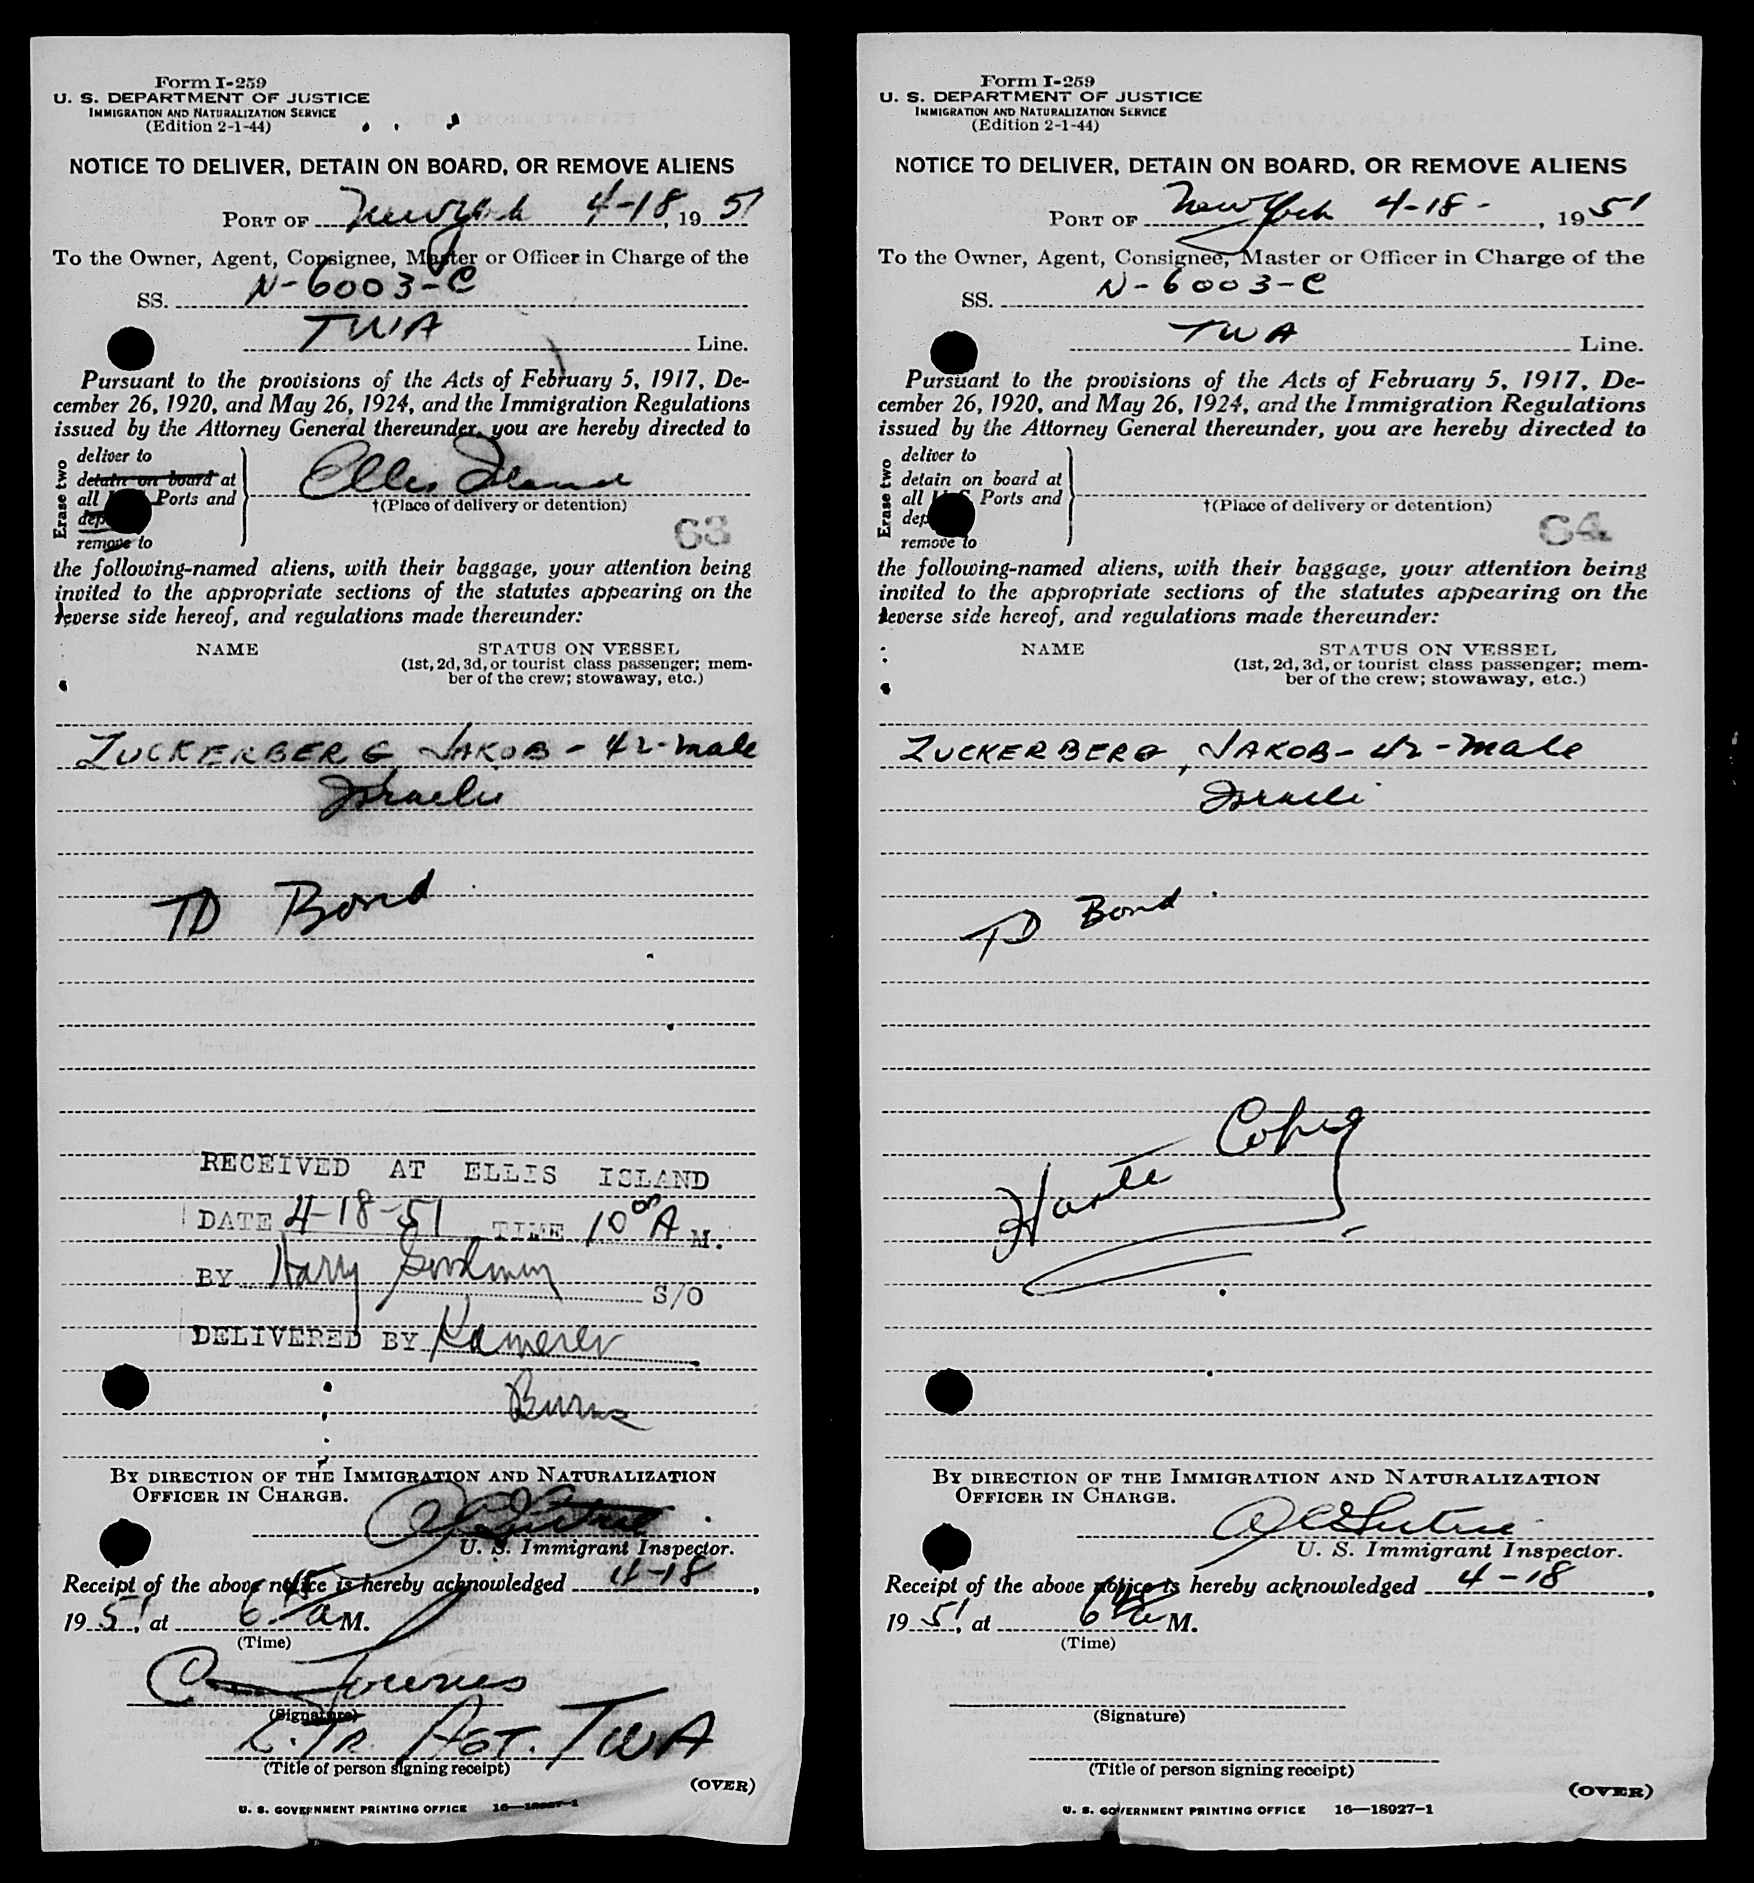 Form I-259
U. S. DEPARTMENT OF JUSTICE
IMMIGRATION AND NATURALIZATION SERVICE
(Edition 2-1-44)
NOTICE TO DELIVER, DETAIN ON BOARD, OR REMOVE ALIENS
PORT OF New York 4-18, 1951
To the Owner, Agent, Consignee, Master or Officer in Charge of the
SS. N-6003-C
TWA Line.
Pursuant to the provisions of the Acts of February 5, 1917, De-
cember 26, 1920, and May 26, 1924, and the Immigration Regulations
issued by the Attorney General thereunder, you are hereby directed to
Erase two
deliver to
detain on board at
all Ports and
dep
remove to
Ellis Island
†(Place of delivery or detention)
63
the following-named aliens, with their baggage, your attention being
invited to the appropriate sections of the statutes appearing on the
reverse side hereof, and regulations made thereunder:
NAME STATUS ON VESSEL
(1st, 2d, 3d, or tourist class passenger; mem-
ber of the crew; stowaway, etc.)
ZUCKERBERG, JAKOB - 42 - male
Israeli
TD Bond
RECEIVED AT ELLIS ISLAND
DATE 4-18-51 TIME 10 00 A M.
BY Harry Goodman S/O
DELIVERED BY Kamerer
Burns
BY DIRECTION OF THE IMMIGRATION AND NATURALIZATION
OFFICER IN CHARGE.
U. S. Immigrant Inspector.
Receipt of the above notice is hereby acknowledged 4-18,
1951, at 6 45 a M.
(Time)
Townes
(Signature)
TR. AGT. TWA
(Title of person signing receipt)
(OVER)
U. S. GOVERNMENT PRINTING OFFICE 16—18027-1
Form I-259
U. S. DEPARTMENT OF JUSTICE
IMMIGRATION AND NATURALIZATION SERVICE
(Edition 2-1-44)
NOTICE TO DELIVER, DETAIN ON BOARD, OR REMOVE ALIENS
PORT OF New York 4-18-, 1951
To the Owner, Agent, Consignee, Master or Officer in Charge of the
SS. N-6003-C
TWA Line.
Pursuant to the provisions of the Acts of February 5, 1917, De-
cember 26, 1920, and May 26, 1924, and the Immigration Regulations
issued by the Attorney General thereunder, you are hereby directed to
Erase two
deliver to
detain on board at
all U S Ports and
dep
remove to
†(Place of delivery or detention)
64
the following-named aliens, with their baggage, your attention being
invited to the appropriate sections of the statutes appearing on the
reverse side hereof, and regulations made thereunder:
NAME STATUS ON VESSEL
(1st, 2d, 3d, or tourist class passenger; mem-
ber of the crew; stowaway, etc.)
ZUCKERBERG, JAKOB - 42 - male
Israeli
TD Bond
Copy
BY DIRECTION OF THE IMMIGRATION AND NATURALIZATION
OFFICER IN CHARGE.
U. S. Immigrant Inspector.
Receipt of the above notice is hereby acknowledged 4-18,
1951, at 6 45 a M.
(Time)
(Signature)
(Title of person signing receipt)
(OVER)
U. S. GOVERNMENT PRINTING OFFICE 16—18027-1